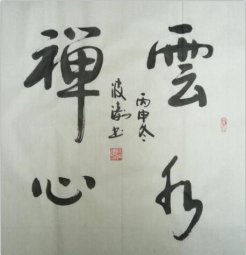 雲水
禪心
丙申冬
波濤書